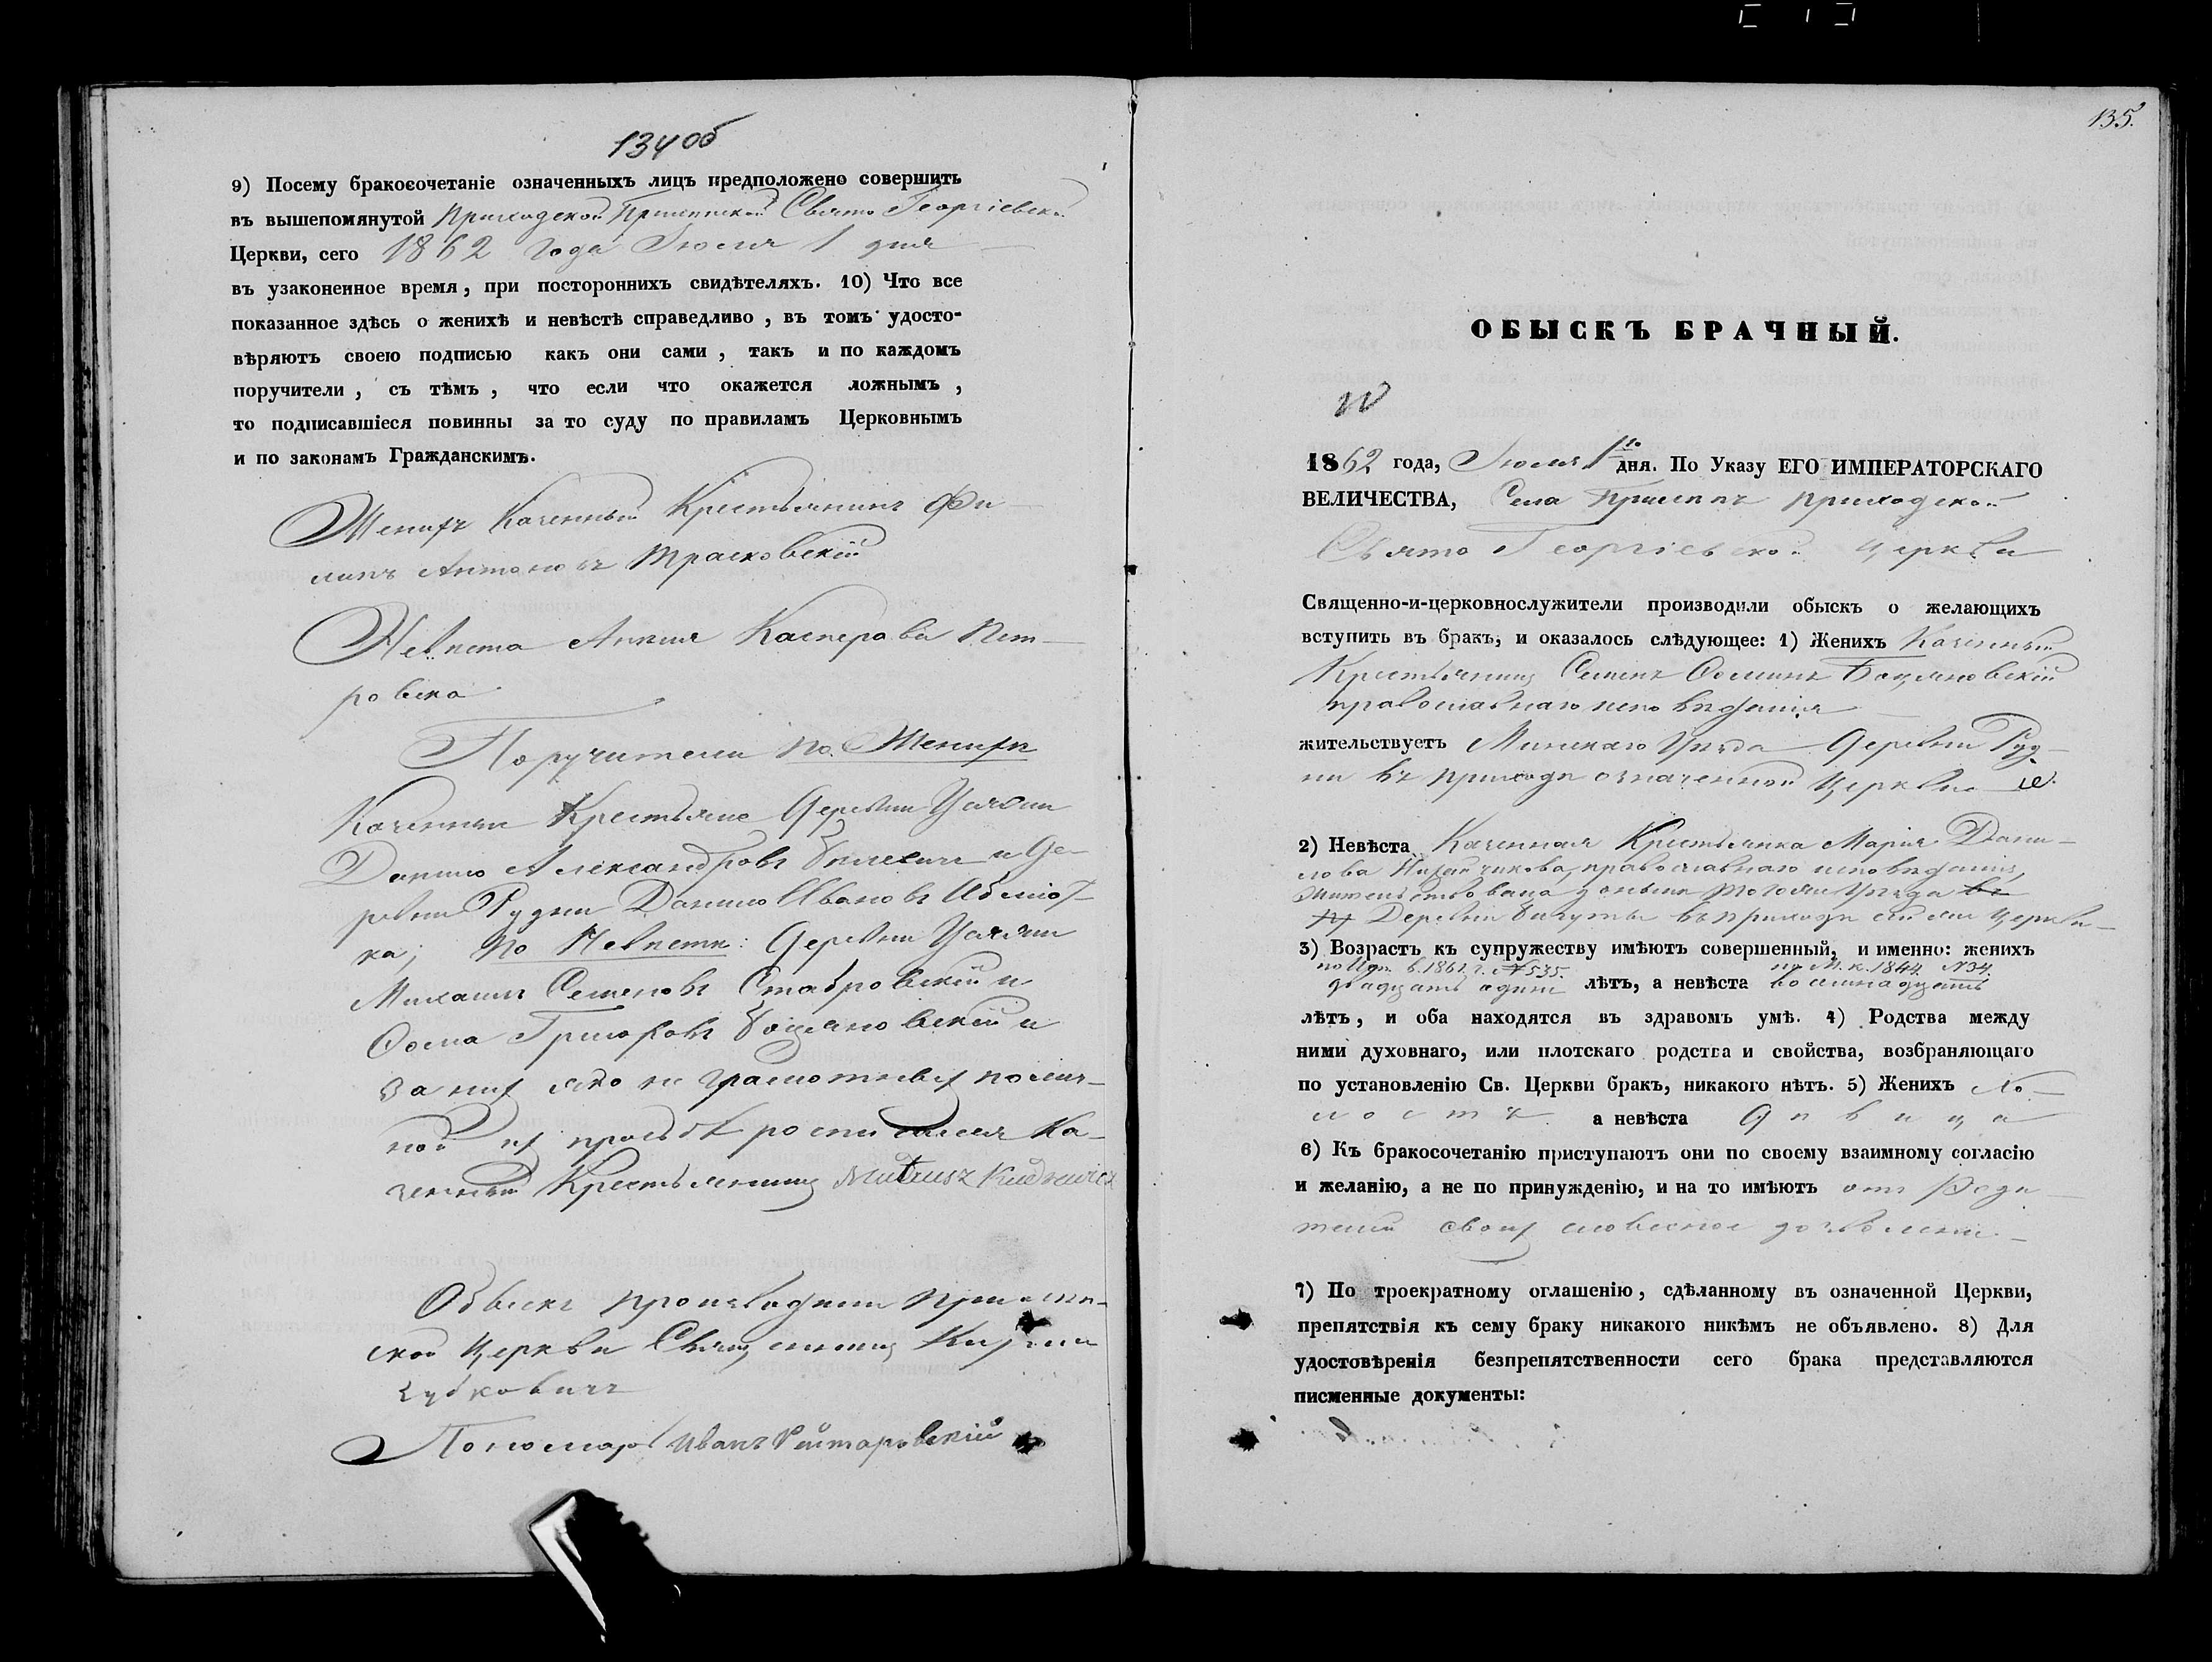 134 об
9) Посему бракосочетаніе означенныхъ лицъ предположено совершить
въ вышепомянутой Приходской Свято Георгіевской
Церкви, сего 1862 года Іюля 1 дня
въ узаконенное время, при постороннихъ свидѣтеляхъ. 10) Что все
показанное здѣсь о женихѣ и невѣстѣ справедливо, въ томъ удосто-
вѣряютъ своею подписью какъ они сами, такъ и по каждомъ
поручители, съ тѣмъ, что если что окажется ложнымъ,
то подписавшіеся повинны за то суду по правиламъ Церковнымъ
и по законамъ Гражданскимъ.
Женихъ Казенный Крестьянинъ Фи-
липъ Антоновъ
Невѣста Касперова Пет-
ровска
Поручители по Женихѣ
Казенные Крестьяне Деревни
Данило Александровъ и Де-
ревни Рудни Данило Ивановъ
ка; по Невѣстѣ: Деревни
Михаилъ Семеновъ Ставровскій и
Ѳома Григоровъ Боцяновскій и
за них яко не грамотных по лич-
ной их прозьбѣ росписался Ка-
зенный Крестьянинъ Mateusz
Обыскъ производили
ской Церкви Священникъ

Пономарь Иванъ
135.
ОБЫСКЪ БРАЧНЫЙ.
1862 года, Іюля 1го дня. По Указу ЕГО ИМПЕРАТОРСКАГО
ВЕЛИЧЕСТВА, Села Приходской
Свято Георгіевской Церкви
Священно-и-церковнослужители производили обыскъ о желающихъ
вступить въ бракъ, и оказалось слѣдующее: 1) Женихъ Казенный
Крестьянинъ Семенъ Ѳоминъ Боцяновскій
православнаго исповѣданія
жительствуетъ Минскаго Уѣзда Деревни Руд-
ни въ приходѣ означенной Церкви
2) Невѣста Казенная Крестьянка Марія Дани-
лова православнаго исповѣданія,
жительствовала доныне того же Уѣзда
Деревни въ приходѣ сей же Церкви
3) Возрастъ къ супружеству имѣютъ совершенный, и именно: женихъ
N 535. по М. к. 1844 N 34.
двадцать одинъ лѣтъ, а невѣста восемнадцать
лѣтъ, и оба находятся въ здравомъ умѣ. 4) Родства между
ними духовнаго, или плотскаго родства и свойства, возбраняющаго
по установленію Св. Церкви бракъ, никакого нѣтъ. 5) Женихъ Хо-
лостъ а невѣста Дѣвица
6) Къ бракосочетанію приступаютъ они по своему взаимному согласію
и желанію, а не по принужденію, и на то имѣютъ отъ Роди-
телей своих словесное дозволеніе
7) По троекратному оглашенію, сдѣланному въ означенной Церкви,
препятствія къ сему браку никакого никѣмъ не объявлено. 8) Для
удостовѣренія безпрепятственности сего брака представляются
писменные документы: